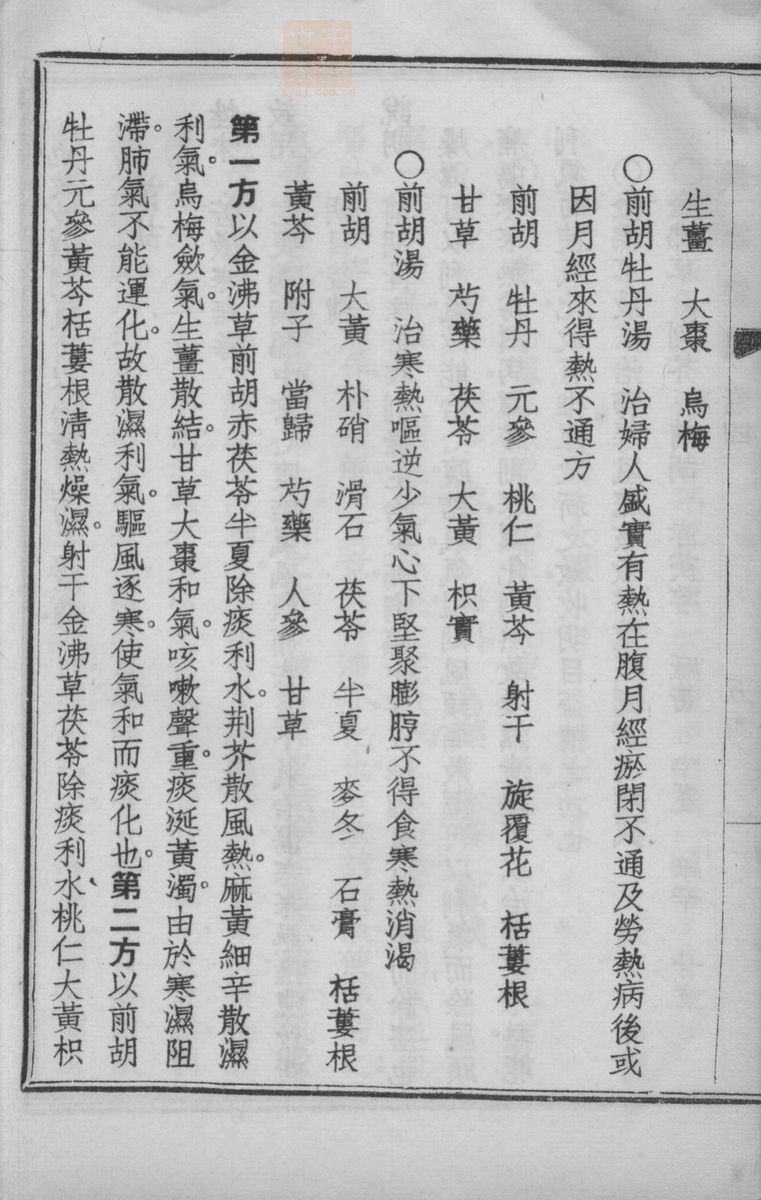 生薑　大棗　烏梅
○前胡牡丹湯　治婦人盛實有熱在腹月經瘀閉不通及勞熱病後或
因月經來得熱不通方
前胡　牡丹　元參　桃仁　黃芩　射干　旋覆花　栝蔞根
甘草　芍藥　茯苓　大黃　枳實
○前胡湯　治寒熱嘔逆少氣心下堅聚膨脝不得食寒熱消渴
前胡　大黃　朴硝　滑石　茯苓　半夏　麥冬　石膏　栝蔞根
黃芩　附子　當歸　芍藥　人參　甘草
第一方以金沸草前胡赤茯苓半夏除痰利水。荆芥散風熱。麻黃細辛散濕
利氣。烏梅歛氣。生薑散結。甘草大棗和氣。咳嗽聲重。痰涎黃濁。由於寒濕阻
滯。肺氣不能運化。故散濕利氣。驅風逐寒。使氣和而痰化也。第二方以前胡
牡丹元參黃芩栝蔞根淸熱燥濕。射干金沸草茯苓除痰利水、桃仁大黃枳